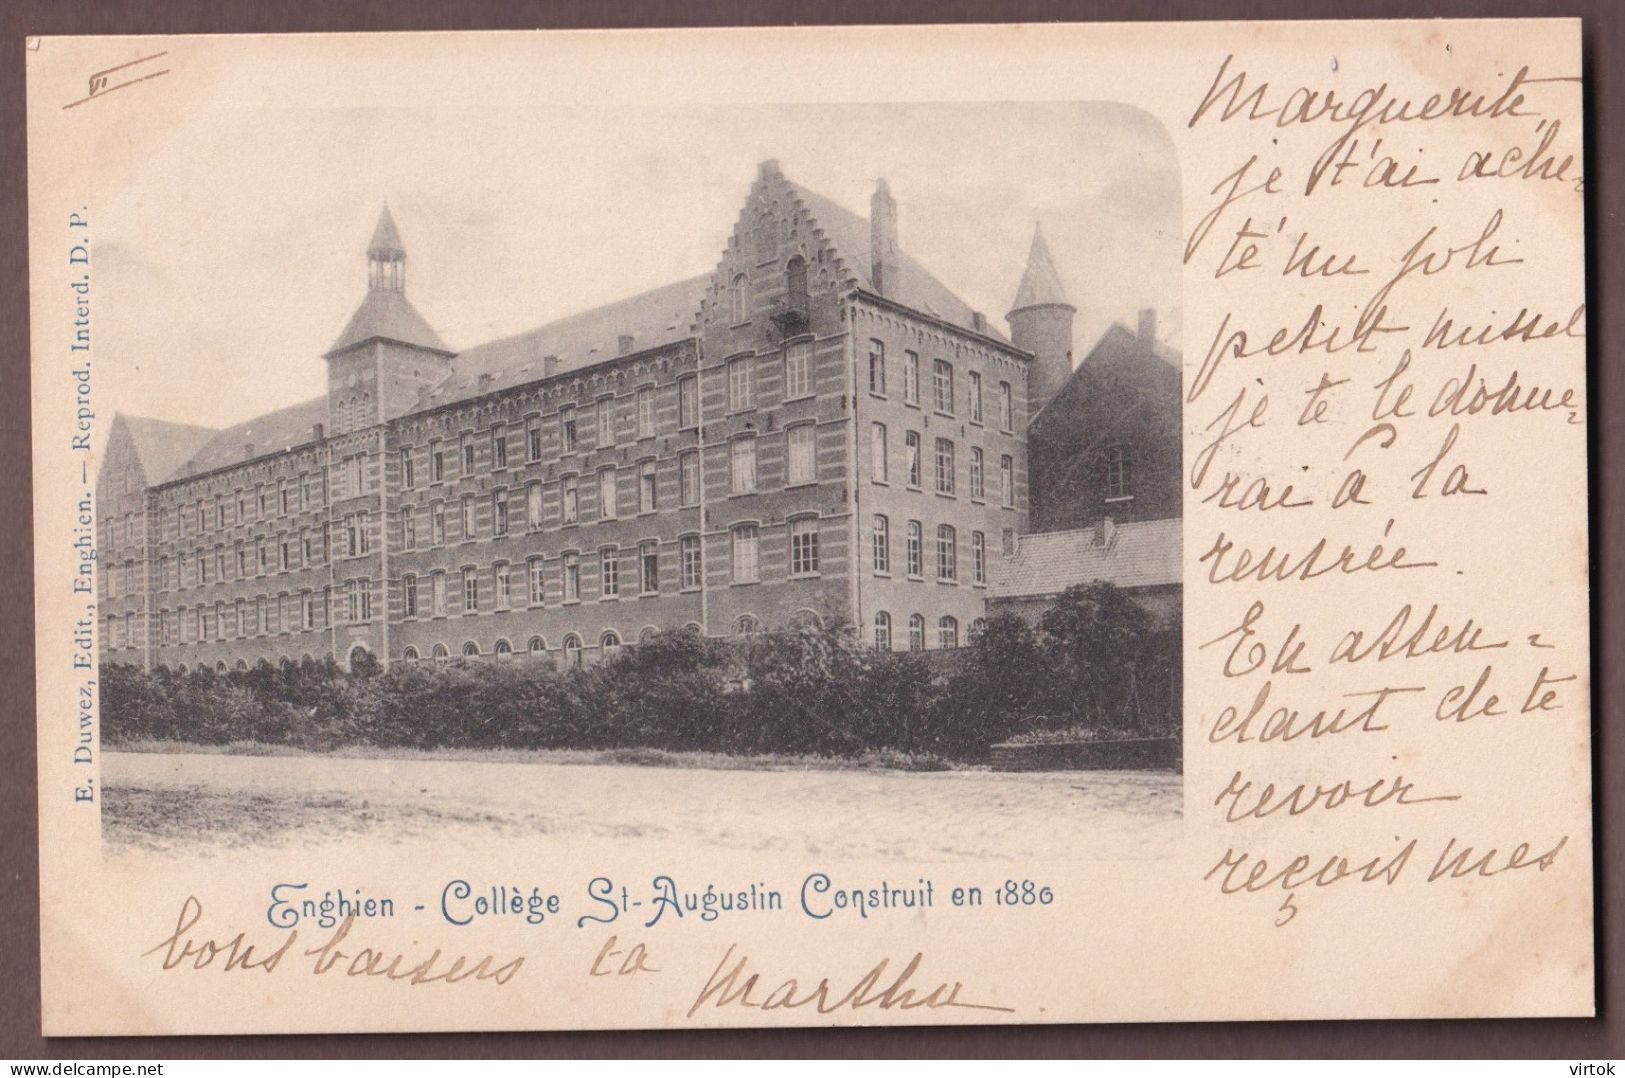 VII
E. Duwez, Edit., Enghien. — Reprod. Interd. D. P.
Marguerite,
je t'ai ache-
té un joli
petit missel
je te le donne-
rai à la
rentrée.
En atten-
dant de te
revoir
reçois mes
Enghien - Collège St-Augustin Construit en 1880
bons baisers ta Martha.
virtok